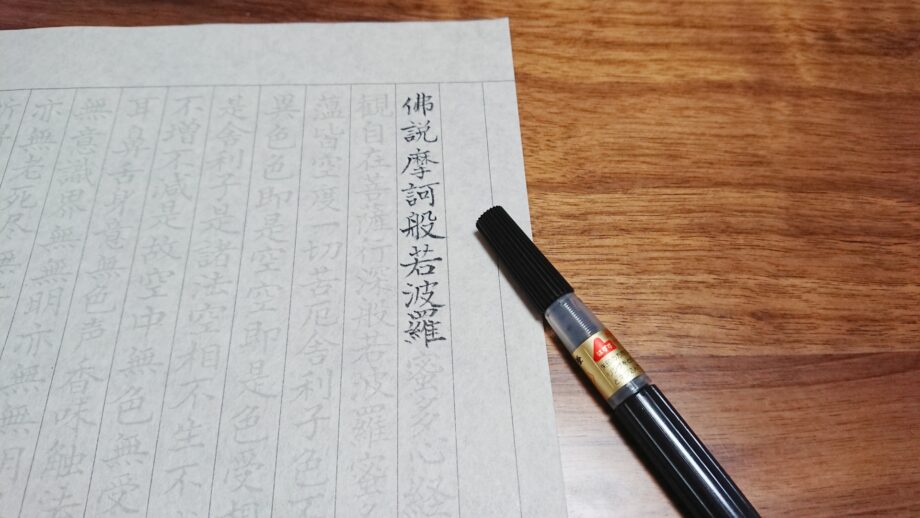 佛説摩訶般若波羅蜜多心経
観自在菩薩行深般若波羅蜜多
蘊皆空度一切苦厄舎利子色不
異色色即是空空即是色受想
是舎利子是諸法空相不生不
不増不減是故空中無色無受
耳鼻舌身意無色声香味触法
無意識界無無明亦無無明
亦無老死尽無